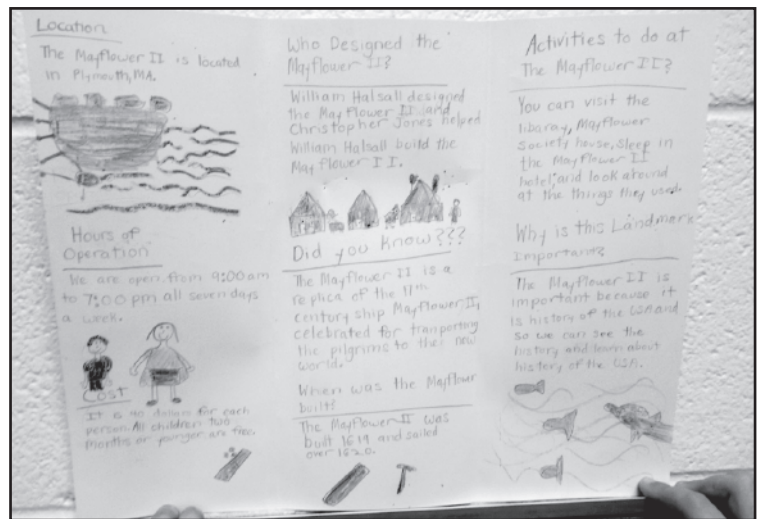 Location
The Mayflower II is located
in Plymouth, MA.
Hours of
Operation
We are open from 9:00 am
to 7:00 pm all seven days
a week.
Cost
It is 40 dollars for each
person. All children two
months or younger are free.
Who Designed the
Mayflower II?
William Halsall designed
the Mayflower II and
Christopher Jones helped
William Halsall build the
Mayflower II.
Did you know???
The Mayflower II is a
replica of the 17th
century ship Mayflower II,
celebrated for tranporting
the pilgrims to the new
world.
When was the Mayflour
built?
The Mayflower II was
built 1619 and sailed
over 1620.
Activities to do at
The Mayflower II?
You can visit the
libaray, Mayflower
Society house, sleep in
the Mayflower II
hotel, and look around
at the things they used.
Why is this Landmark
Important?
The Mayflower II is
important because it
is history of the USA and
so we can see the
history and learn about
history of the USA.